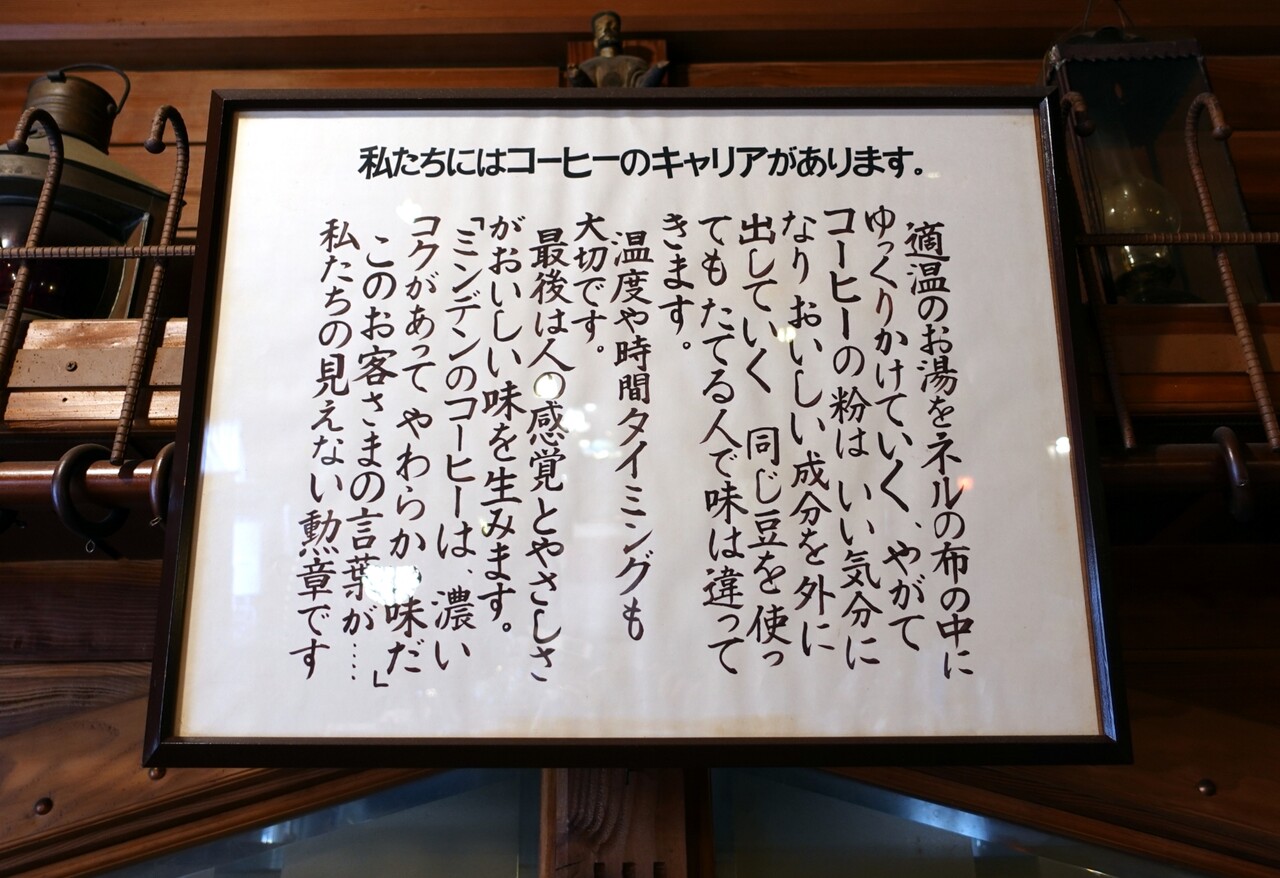 私たちにはコーヒーのキャリアがあります。
適温のお湯をネルの布の中に
ゆっくりかけていく、やがて
コーヒーの粉は いい気分に
なり おいしい成分を外に
出していく 同じ豆を使っ
ても たてる人で味は違って
きます。
温度や時間タイミングも
大切です。
最後は人の感覚とやさしさ
がおいしい味を生みます。
「ミンデンのコーヒーは、濃い
コクがあって やわらか 味だ」
このお客さまの言葉が……
私たちの見えない勲章です